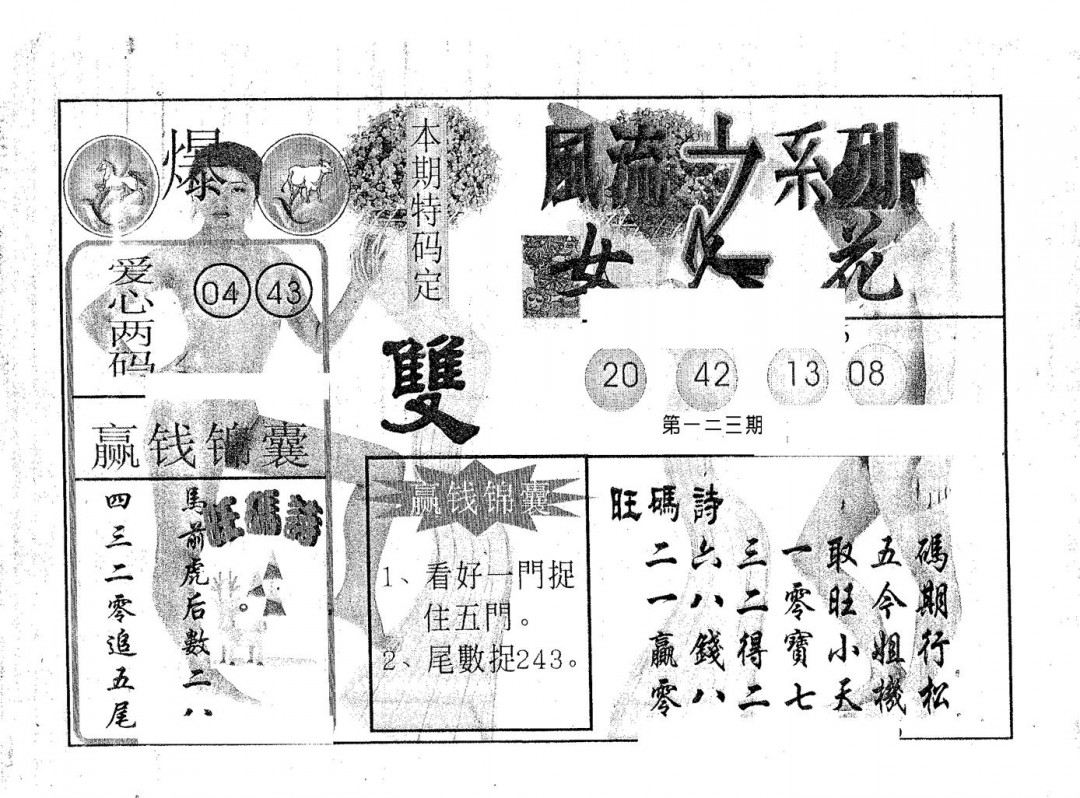 爆
爱心两码
04 43
赢钱锦囊
旺碼詩
馬前虎后數二八
四三二零追五尾
本期特码定
雙
赢钱锦囊
1、看好一門捉
住五門。
2、尾數捉243。
風流之系列
女人花
20 42 13 08
第一二三期
旺碼詩
二六三一取五碼
一八二零旺今期
贏錢得寶小姐行
零八二七天機松